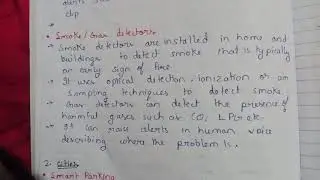 clip
→
• Smoke/Gas detectors
→ Smoke detectors are installed in home and
buildings to detect smoke that is typically
an early sign of fire
→ It uses optical detection, ionization or air
sampling techniques to detect smoke
→ Gas detectors can detect the presence of
harmful gases such as CO, LPG etc.
→ It can raise alerts in human voice
describing where the problem is.
2. Cities
• Smart Parking